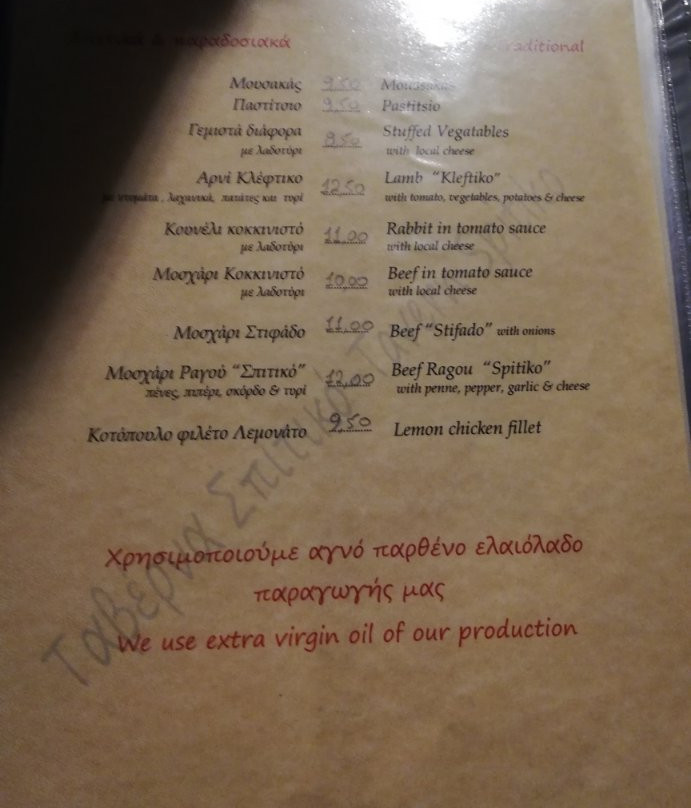 & παραδοσιακά traditional
Μουσακάς 9,50 Moussakas
Παστίτσιο 9,50 Pastitsio
Γεμιστά διάφορα 8,50 Stuffed Vegatables
με λαδοτύρι with local cheese
Αρνί Κλέφτικο 12,50 Lamb "Kleftiko"
με ντομάτα , λαχανικά, πατάτες και τυρί with tomato, vegetables, potatoes & cheese
Κουνέλι κοκκινιστό 11,00 Rabbit in tomato sauce
με λαδοτύρι with local cheese
Μοσχάρι Κοκκινιστό 10,00 Beef in tomato sauce
με λαδοτύρι with local cheese
Μοσχάρι Στιφάδο 11,00 Beef "Stifado" with onions
Μοσχάρι Ραγού "Σπιτικό" 12,00 Beef Ragou "Spitiko"
πένες, πιπέρι, σκόρδο & τυρί with penne, pepper, garlic & cheese
Κοτόπουλο φιλέτο Λεμονάτο 9,50 Lemon chicken fillet
Χρησιμοποιούμε αγνό παρθένο ελαιόλαδο
παραγωγής μας
We use extra virgin oil of our production
Ταβέρνα Σπιτικό Tavern Spitiko